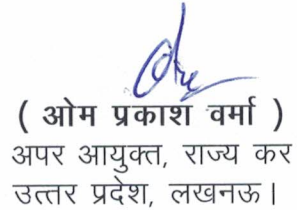 ( ओम प्रकाश वर्मा )
अपर आयुक्त, राज्य कर
उत्तर प्रदेश, लखनऊ।